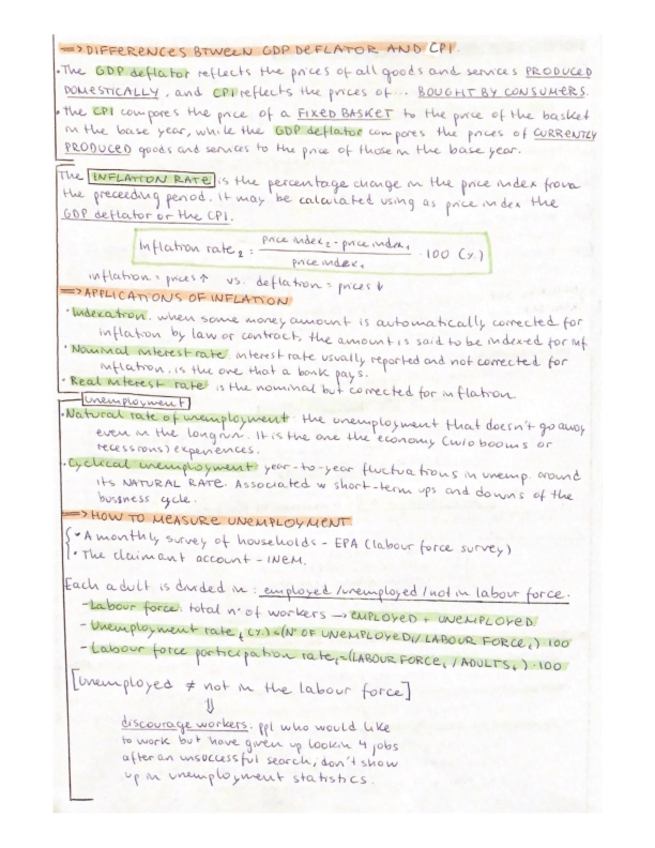 => DIFFERENCES BTWEEN GDP DEFLATOR AND CPI.
· The GDP deflator reflects the prices of all goods and services PRODUCED
DOMESTICALLY, and CPI reflects the prices of... BOUGHT BY CONSUMERS.
· The CPI compares the price of a FIXED BASKET to the price of the basket
in the base year, while the GDP deflator compares the prices of CURRENTLY
PRODUCED goods and services to the price of those in the base year.
The INFLATION RATE is the percentage change in the price index from
the preceeding period. It may be calculated using as price index the
GDP deflator or the CPI.
Inflation rate₂ = price index₂ - price index₁ · 100 (%)
price index₁
inflation = prices ↑ vs. deflation = prices ↓
=> APPLICATIONS OF INFLATION
· Indexation. when some money amount is automatically corrected for
inflation by law or contract, the amount is said to be indexed for inf.
· Nominal interest rate. interest rate usually reported and not corrected for
inflation, is the one that a bank pays.
· Real interest rate is the nominal but corrected for inflation.
Unemployment
· Natural rate of unemployment the unemployment that doesn't go away
even in the longrun. It is the one the economy (w/o booms or
recessions) experiences.
· Cyclical unemployment year-to-year fluctuations in unemp. around
its NATURAL RATE. Associated w short-term ups and downs of the
bussness cycle.
=> HOW TO MEASURE UNEMPLOYMENT
· A monthly survey of households - EPA (labour force survey)
· The claimant account - INEM.
Each adult is divided in: employed / unemployed / not in labour force.
- Labour force: total nº of workers → EMPLOYED + UNEMPLOYED
- Unemployment rate t (%) = (Nº OF UNEMPLOYED t / LABOUR FORCE t) · 100
- Labour force participation rate t = (LABOUR FORCE t / ADULTS t) · 100
[Unemployed ≠ not in the labour force]
⇓
discourage workers: ppl who would like
to work but have given up lookin 4 jobs
after an unsoccessful search, don't show
up in unemployment statistics.